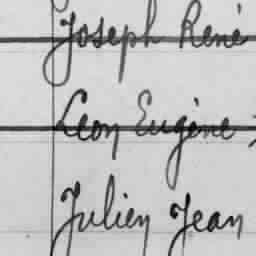 Joseph René
Leon Eugène
Julien Jean